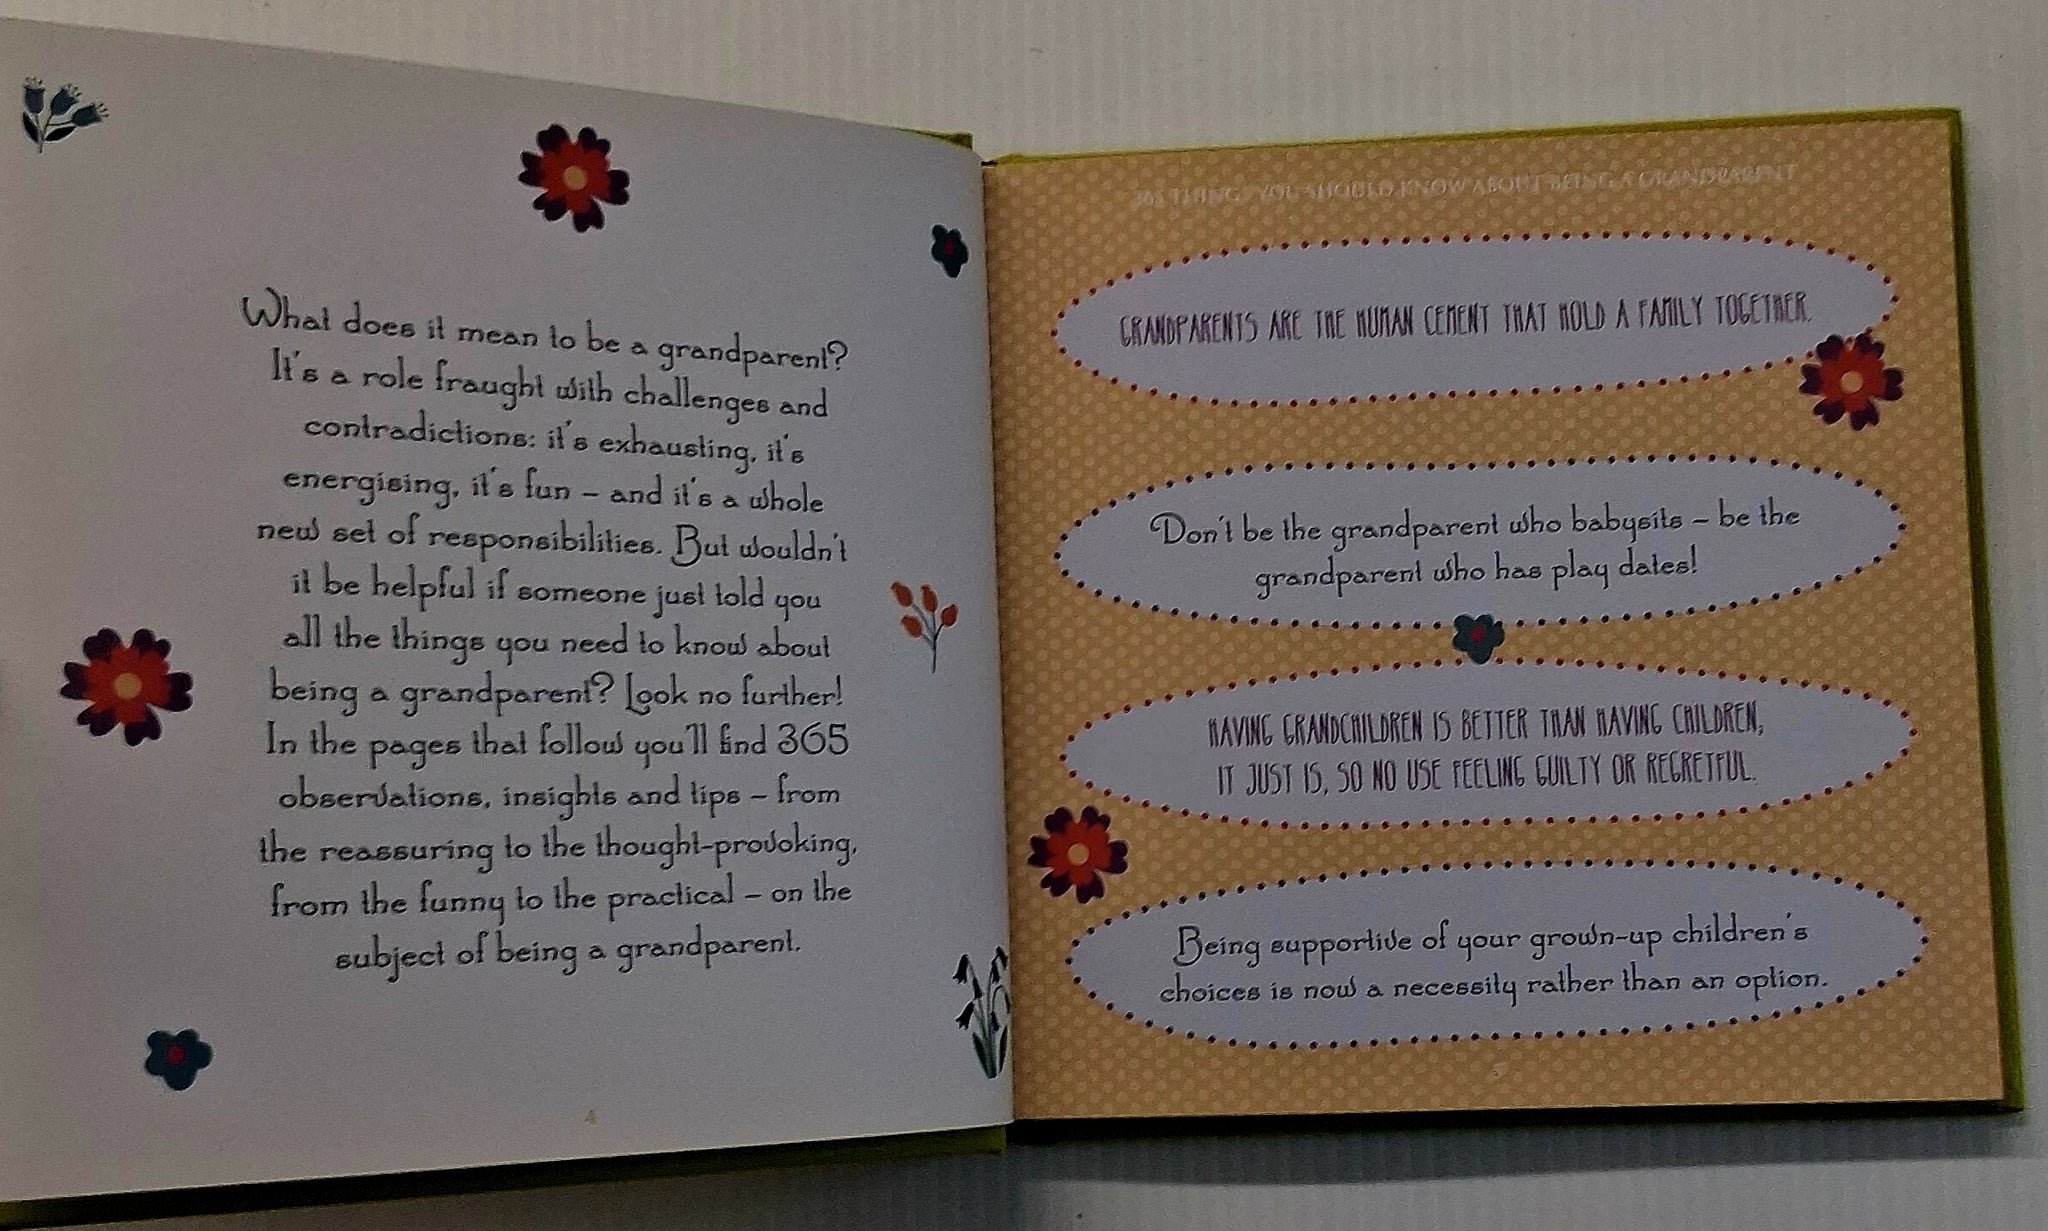 What does it mean to be a grandparent?
It's a role fraught with challenges and
contradictions: it's exhausting, it's
energising, it's fun – and it's a whole
new set of responsibilities. But wouldn't
it be helpful if someone just told you
all the things you need to know about
being a grandparent? Look no further!
In the pages that follow you'll find 365
observations, insights and tips – from
the reassuring to the thought-provoking,
from the funny to the practical – on the
subject of being a grandparent.
4
365 THINGS YOU SHOULD KNOW ABOUT BEING A GRANDPARENT
GRANDPARENTS ARE THE HUMAN CEMENT THAT HOLD A FAMILY TOGETHER.
Don't be the grandparent who babysits – be the
grandparent who has play dates!
HAVING GRANDCHILDREN IS BETTER THAN HAVING CHILDREN;
IT JUST IS, SO NO USE FEELING GUILTY OR REGRETFUL.
Being supportive of your grown-up children's
choices is now a necessity rather than an option.
5